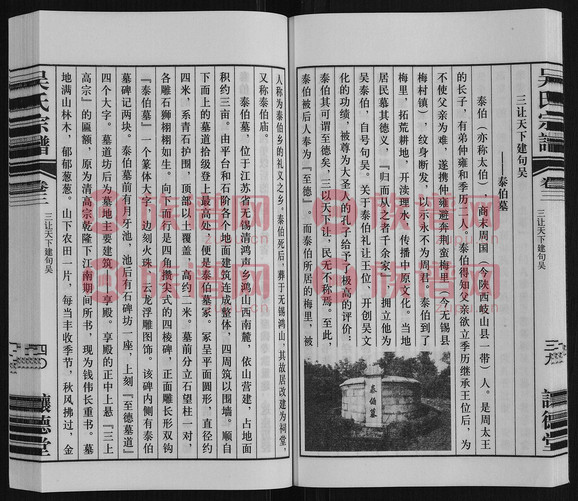 吴氏宗谱
卷三
三让天下建句吴
三九
让德堂
三让天下建句吴
泰伯墓
泰伯（亦称太伯），商末周国（今陕西岐山县一带）人。是周太王
的长子，有弟仲雍和季历二人。泰伯得知父亲欲立季历继承王位后，为
不使父亲为难，遂携仲雍避奔荆蛮梅里（今无锡县
梅村镇），纹身断发，以示永不为周君。泰伯到了
梅里，拓荒耕地，开渎理水，传播中原文化。当地
居民慕其德义，『归而从之者千余家』，拥立他为
吴泰伯，自号句吴。关于泰伯礼让王位、开创吴文
化的功绩，被尊为大圣人的孔子给予了极高的评价：
泰伯其可谓至德矣，三以天下让，民无不称焉。至此，
泰伯被后人奉为『至德』，而泰伯所居的梅里，被
泰伯墓
人称为泰伯乡的礼义之乡；泰伯死后，葬于无锡鸿山，其故居改建为祠堂，
又称泰伯庙。
泰伯墓，位于江苏省无锡清鸿声乡鸿山西南麓，依山营建，占地面
积约三亩。由平台和石阶各个地面建筑连成整体，四周筑以围墙。顺自
下而上的墓道拾级登上最高处，便是泰伯墓冢。冢呈平面圆形，直径约
四米，系青石护围，顶部以土覆盖，高约二米。墓前分立石望柱一对，
各雕石狮栩栩如生。向下而行是四角攒尖式的四棱碑，正面雕长形双钩
『泰伯墓』一个篆体大字，边刻火珠，云龙浮雕图饰。该碑内侧有泰伯
墓碑记两块。泰伯墓前有月牙池，池后有石碑坊一座，上刻『至德墓道』
四个大字。墓道后方为墓地主要建筑，享殿。享殿的正中上悬『三上
高宗』的匾额，原为清高宗乾隆下江南期间所书，现为钱伟长重书。墓
地满山林木，郁郁葱葱。山下农田一片，每当丰收季节，秋风拂过，金
吴氏宗谱
卷三
三让天下建句吴
四〇
让德堂
族谱网